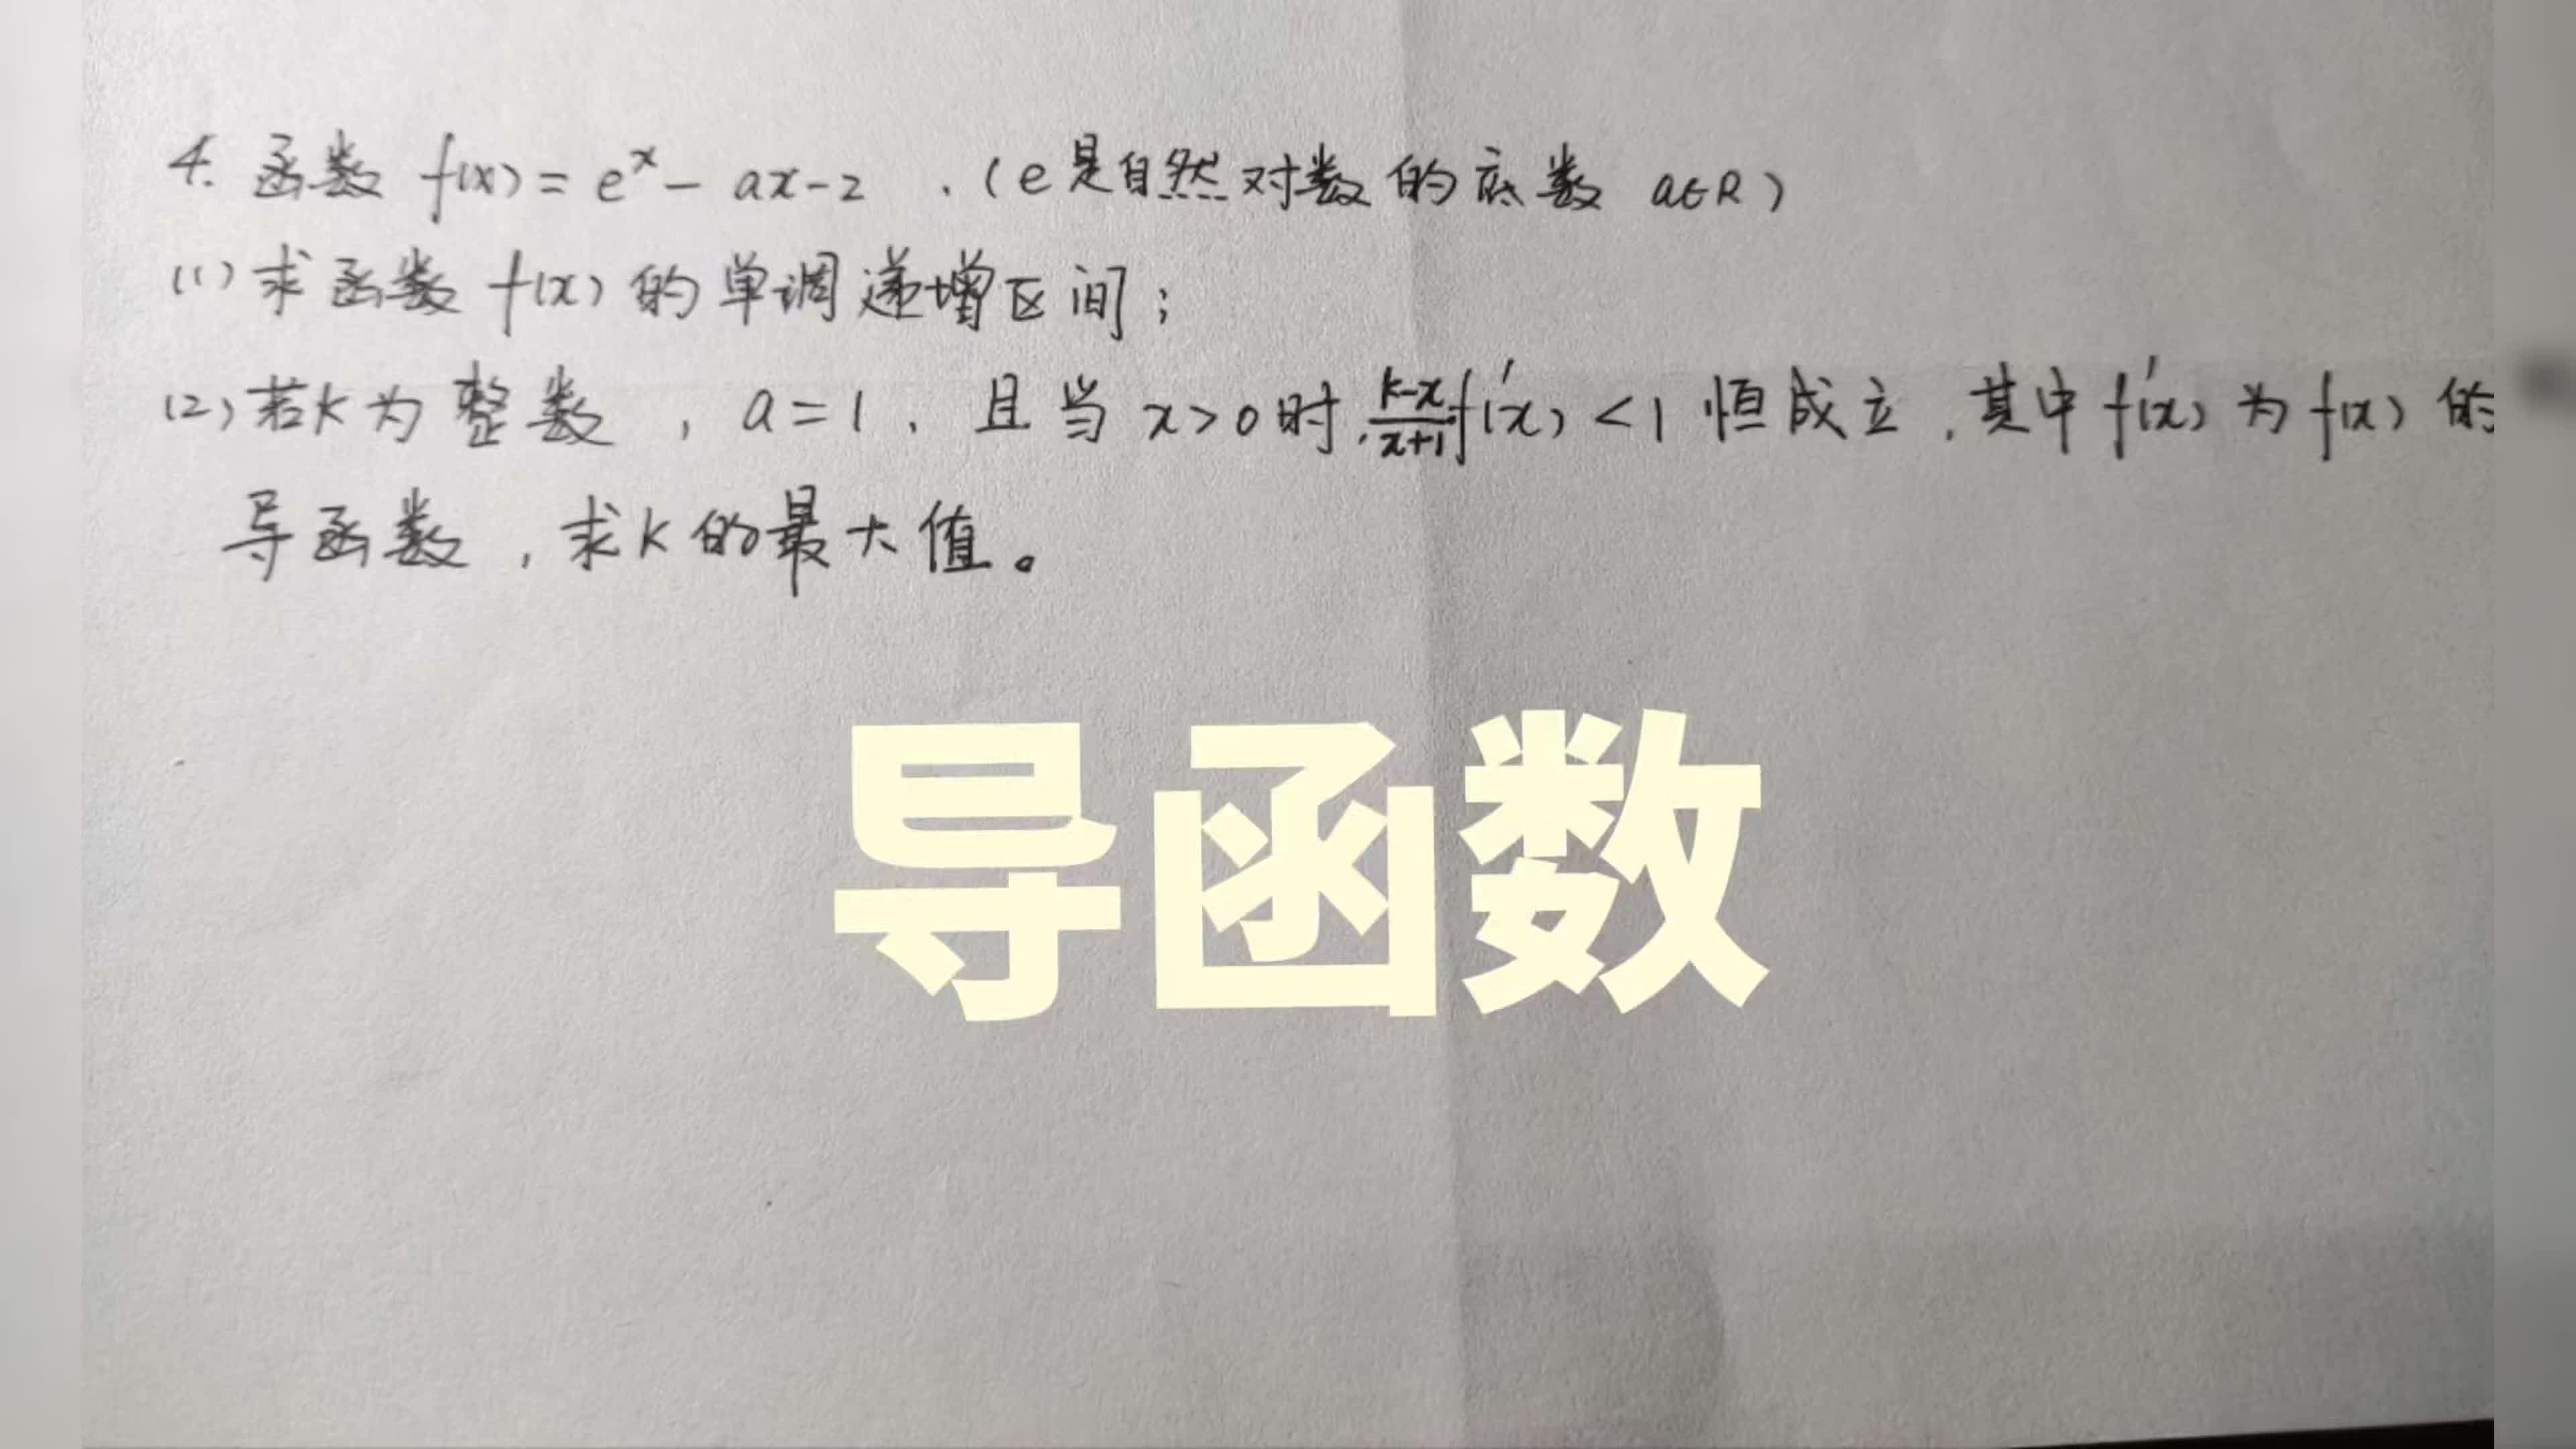 4. 函数 f(x) = eˣ - ax - 2 .（e是自然对数的底数 a∈R）
(1) 求函数 f(x) 的单调递增区间；
(2) 若k为整数，a=1，且当 x>0时，\frac{k-x}{x+1}f'(x) <1 恒成立，其中f'(x) 为 f(x) 的
导函数，求k的最大值。
导函数